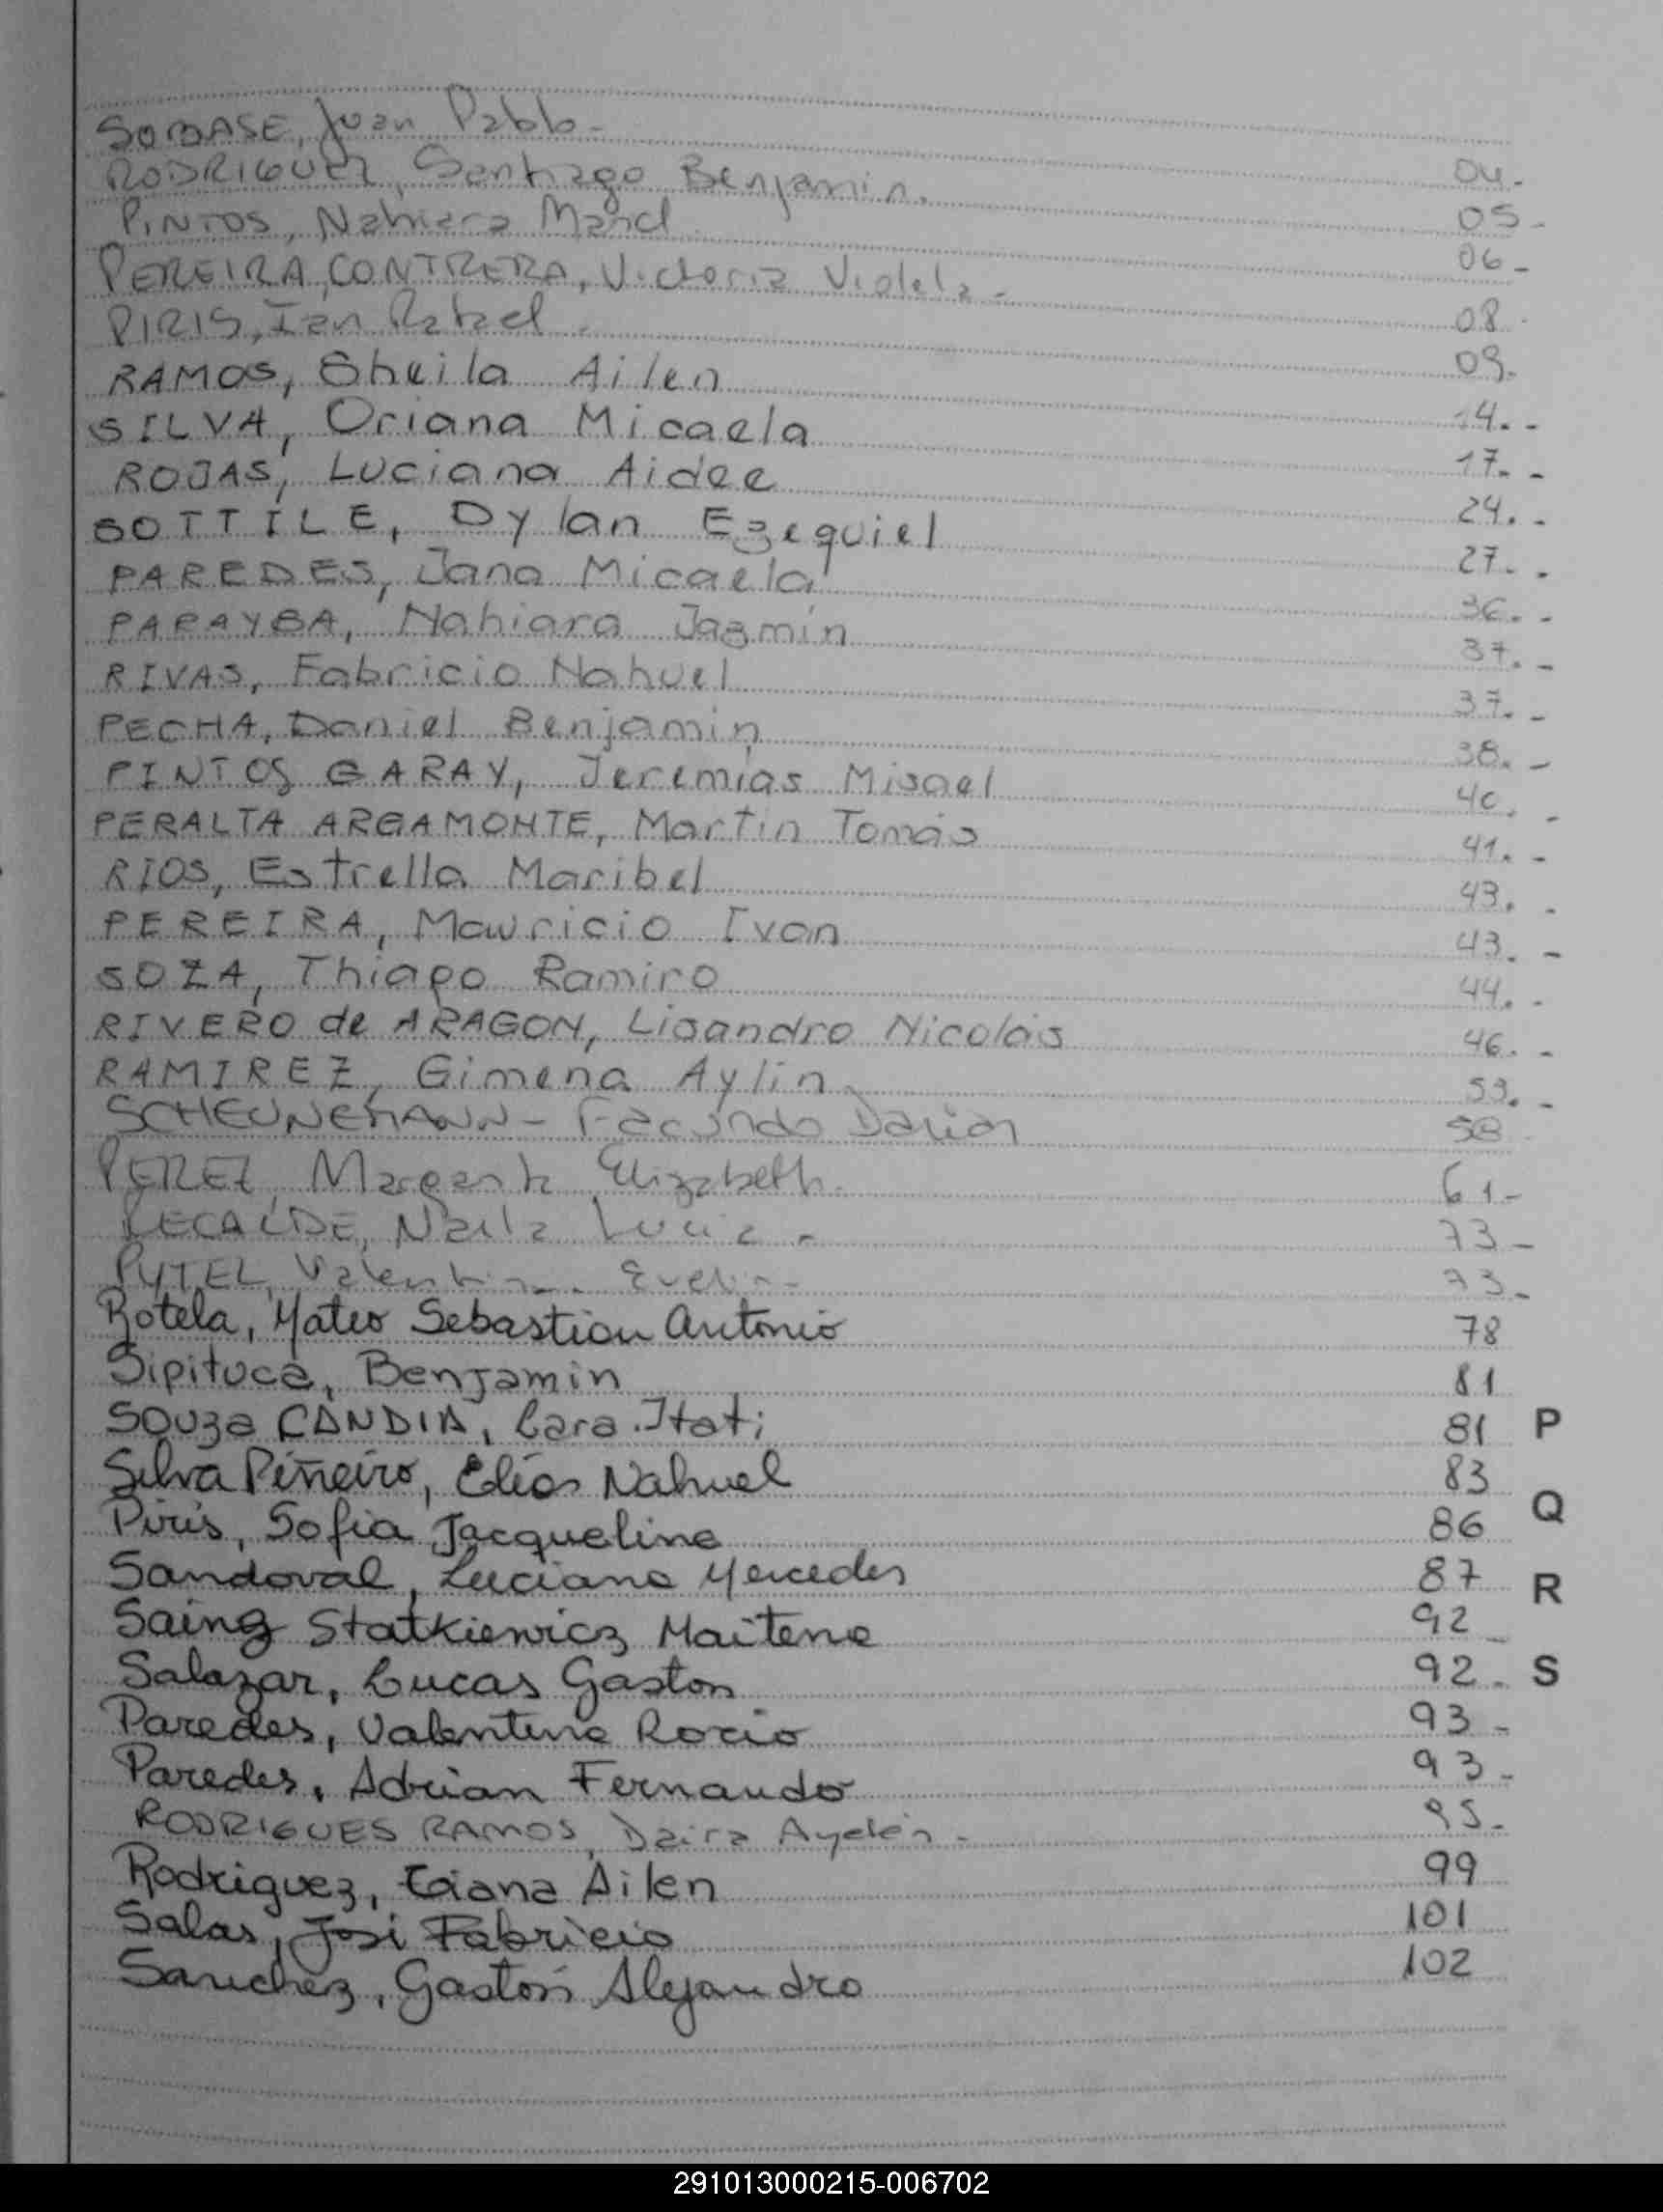 SOBASE, Juan Pablo - 04.-
RODRIGUEZ, Santiago Benjamin. 05-
PINTOS, Nahiara Mariel 06-
PEREIRA CONTRERA, Victoria Violeta - 08-
PIRIS, Ian Rafael. 09.
RAMOS, Sheila Ailen 14.-
SILVA, Oriana Micaela 17.-
ROJAS, Luciana Aidee 24.-
SOTTILE, Dylan Ezequiel 27.-
PAREDES, Jana Micaela 36.-
PARAYBA, Nahiara Jazmín 37.-
RIVAS, Fabricio Nahuel 37.-
PECHA, Daniel Benjamin 38.-
PINTOS GARAY, Jeremías Misael 40.-
PERALTA ARGAMONTE, Martin Tomás 41.-
RIOS, Estrella Maribel 43.-
PEREIRA, Mauricio Ivan 43.-
SOZA, Thiago Ramiro 44.-
RIVERO de ARAGON, Lisandro Nicolás 46.-
RAMIREZ, Gimena Aylin 53.-
SCHEUNEMANN - Facundo Darian 58
PEREZ, Margarita Elizabeth. 61-
RECALDE, Naila Lucia - 73-
PYTEL, Valentina Evelin- 73-
Rotela, Mateo Sebastian Antonio 78
Sipituca, Benjamin 81
Souza CANDIA, Cara Itati 81
Silva Piñeiro, Elías Nahuel 83
Piris, Sofia Jacqueline 86
Sandoval, Luciana Mercedes 87
Sainz Statkiewicz Maitena 92-
Salazar, Lucas Gaston 92-
Paredes, Valentina Rocio 93-
Paredes, Adrian Fernando 93-
RODRIGUES RAMOS, Daira Ayelén - 95-
Rodriguez, Ailen 99
Salas, José Fabricio 101
Sanchez, Gastón Alejandro 102
P
Q
R
S
291013000215-006702